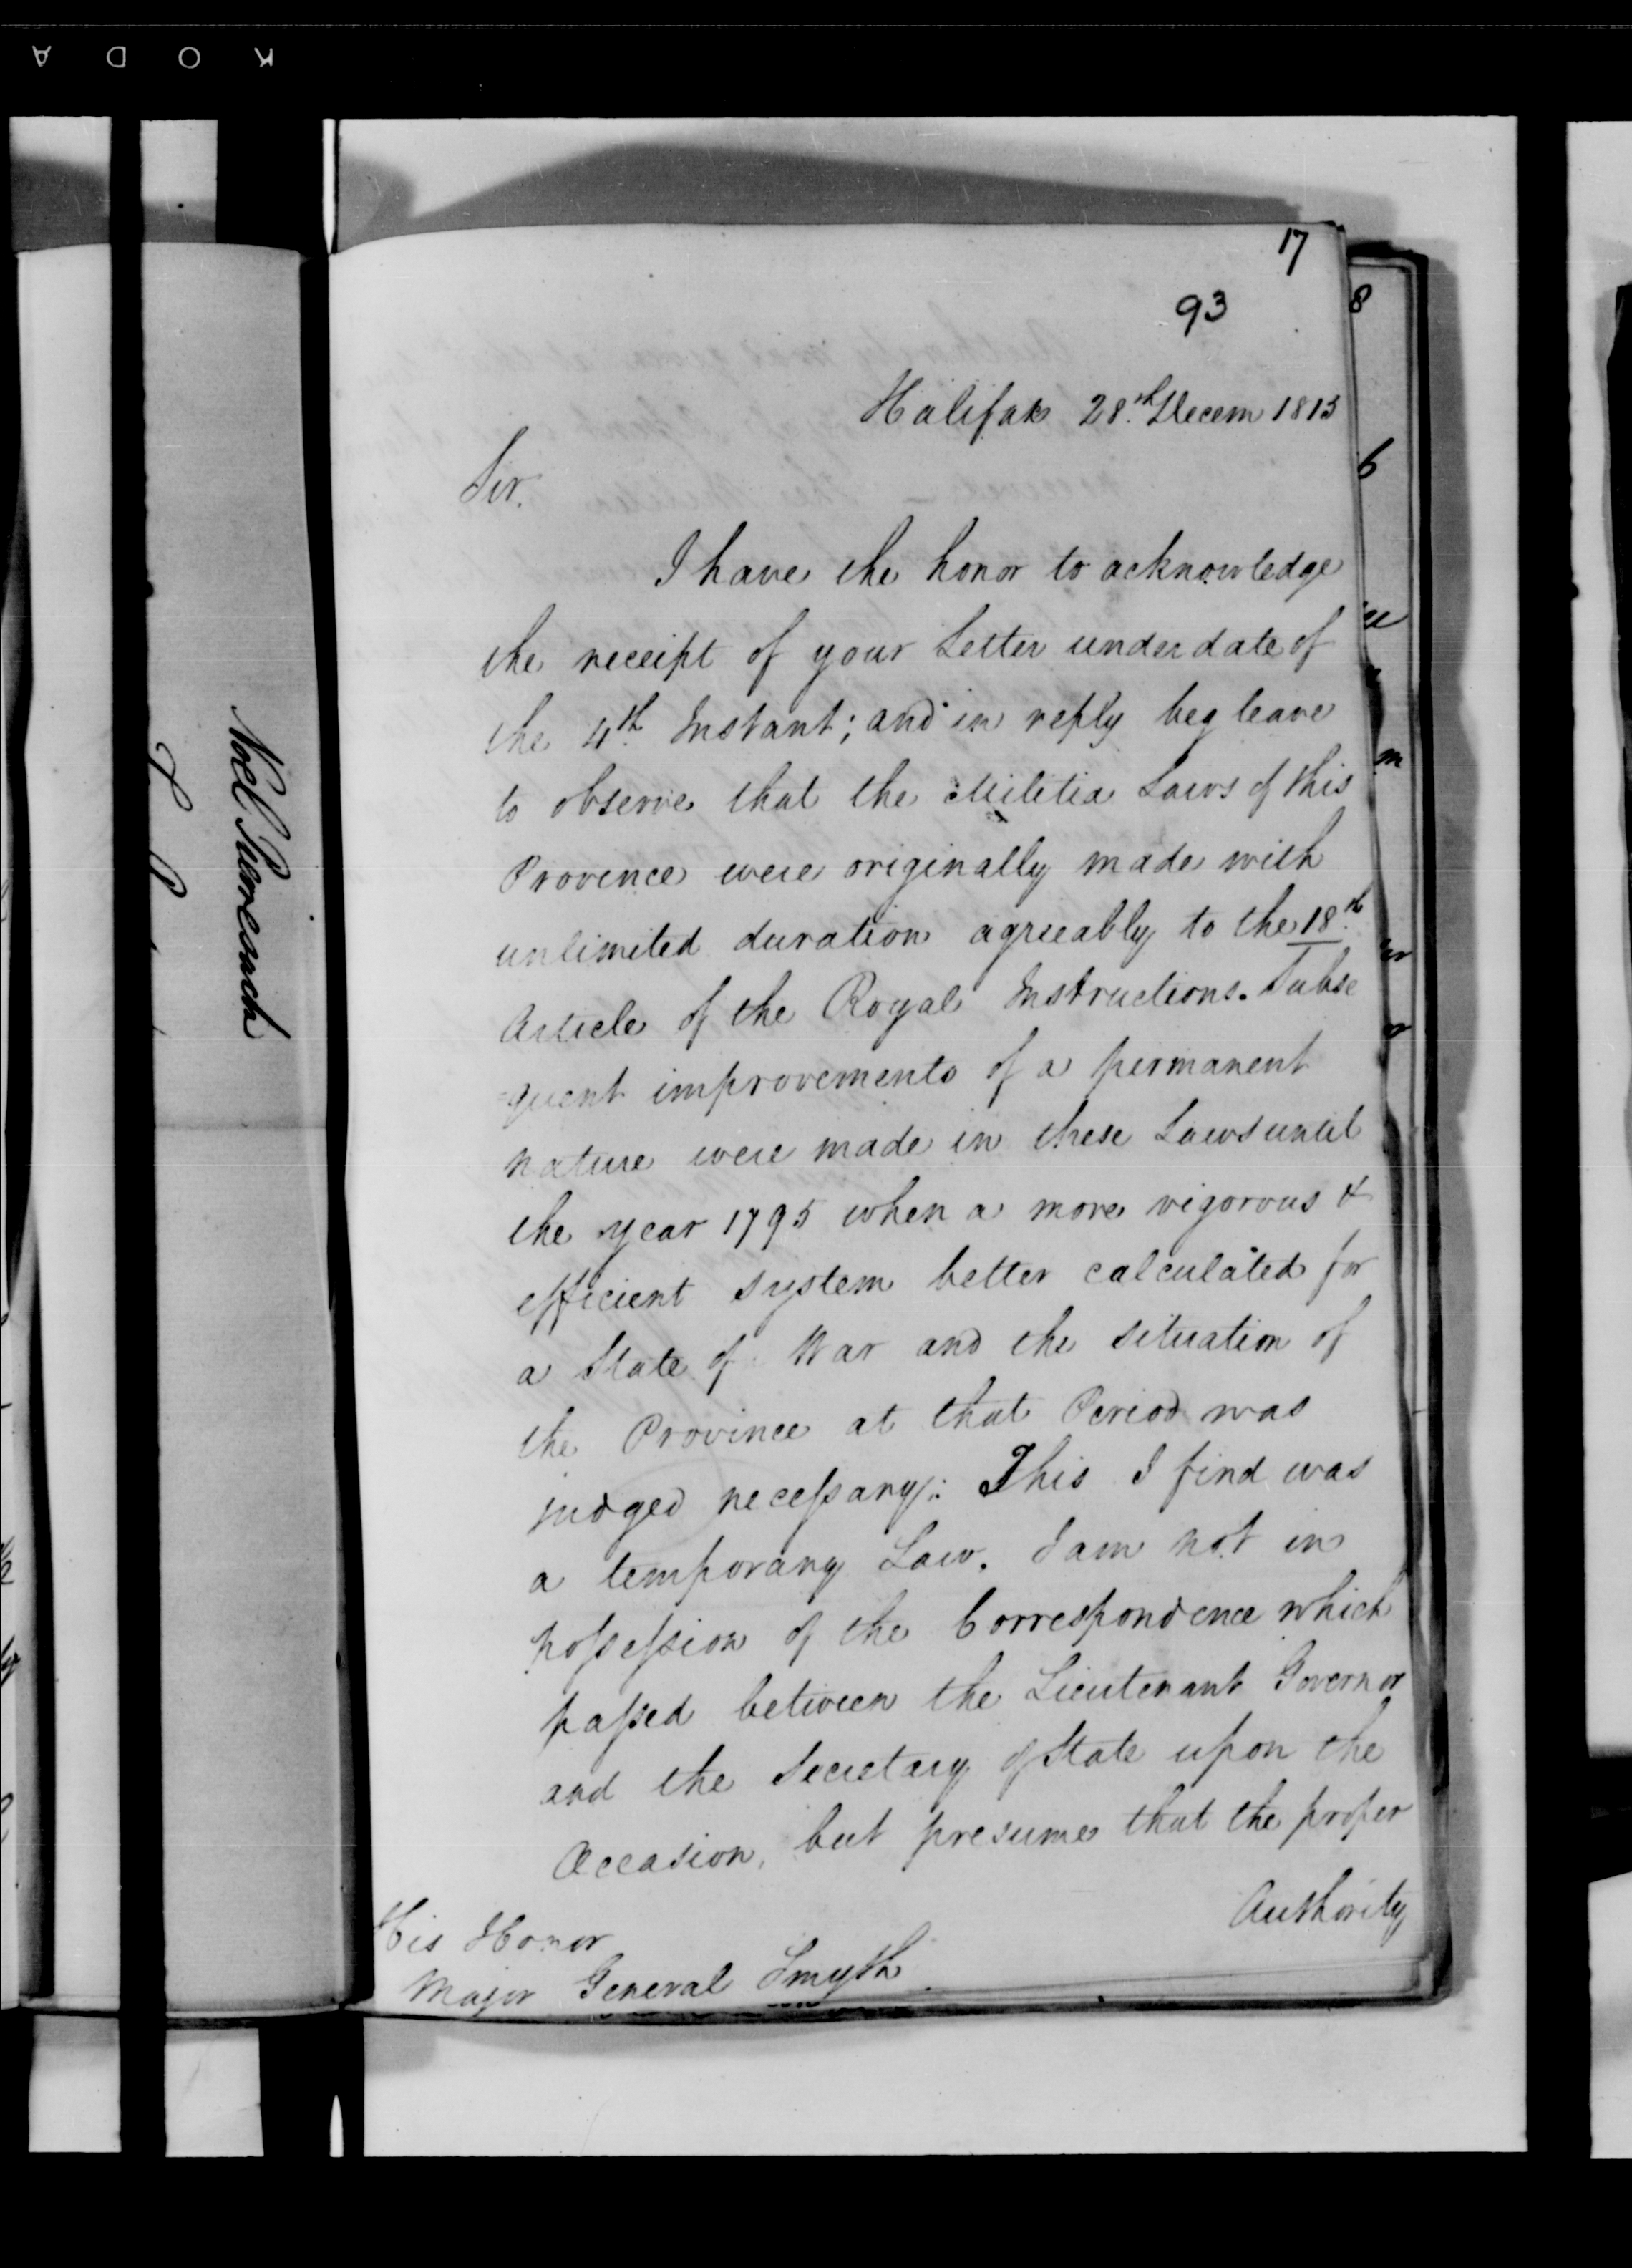 KODA
17
93
Halifax 28.th Decem 1813
Sir.
I have the honor to acknowledge
the receipt of your Letter under date of
the 4th Instant; and in reply beg leave
to observe that the Militia Laws of this
Province were originally made with
unlimited duration agreeably to the 18.th
Article of the Royal Instructions. Subse
=quent improvements of a permanent
nature were made in these Laws until
the year 1795 when a more vigorous &
efficient system better calculated for
a State of War and the situation of
the Province at that Period was
judged necessary: This I find was
a temporary Law. I am not in
possession of the Correspondence which
passed between the Lieutenant Governor
and the Secretary of State upon the
Occasion, but presume that the proper
Authority
His Honor
Major General Smyth